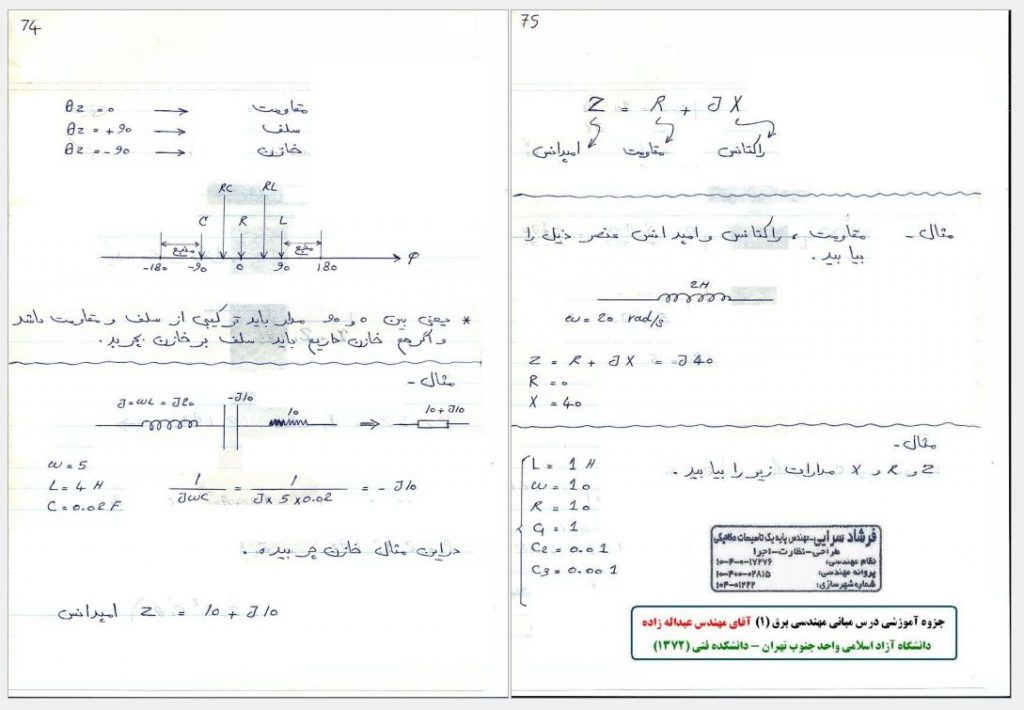 74
θz = 0 → مقاومت
θz = +90 → سلف
θz = -90 → خازن
RC RL
C R L
منبع منبع
-180 -90 0 90 180 φ
* یعنی بین 0 و 90 مدار باید ترکیبی از سلف و مقاومت باشد
و اگر هم خازن داریم باید سلف بر خازن بچربد.
مثال -
J=WL = J20 -J10 10 ⇒ 10+J10
W = 5
L = 4 H
C = 0.02 F
1/JWC = 1/J×5×0.02 = -J10
در این مثال خازن چربیده.
امپدانس Z = 10 + J10
75
Z = R + JX
امپدانس مقاومت راکتانس
مثال - مقاومت ، راکتانس و امپدانس عنصر ذیل را
بیابید.
2H
W = 20 rad/s
Z = R + JX = J40
R = 0
X = 40
مثال -
Z و R و X مدارات زیر را بیابید.
L = 1 H
W = 10
R = 10
C1 = 1
C2 = 0.01
C3 = 0.001
فرشاد سرایی-مهندس پایه یک تاسیسات مکانیکی
طراحی-نظارت-اجرا
نظام مهندسی: ۱۰-۴-۰-۱۷۲۷۶
پروانه مهندسی: ۱۰-۴۰۰-۰۲۸۱۵
شماره شهرسازی: ۱۰۴-۰۱۲۲۲
جزوه آموزشی درس مبانی مهندسی برق (۱) آقای مهندس عبداله زاده
دانشگاه آزاد اسلامی واحد جنوب تهران – دانشکده فنی (۱۳۷۲)